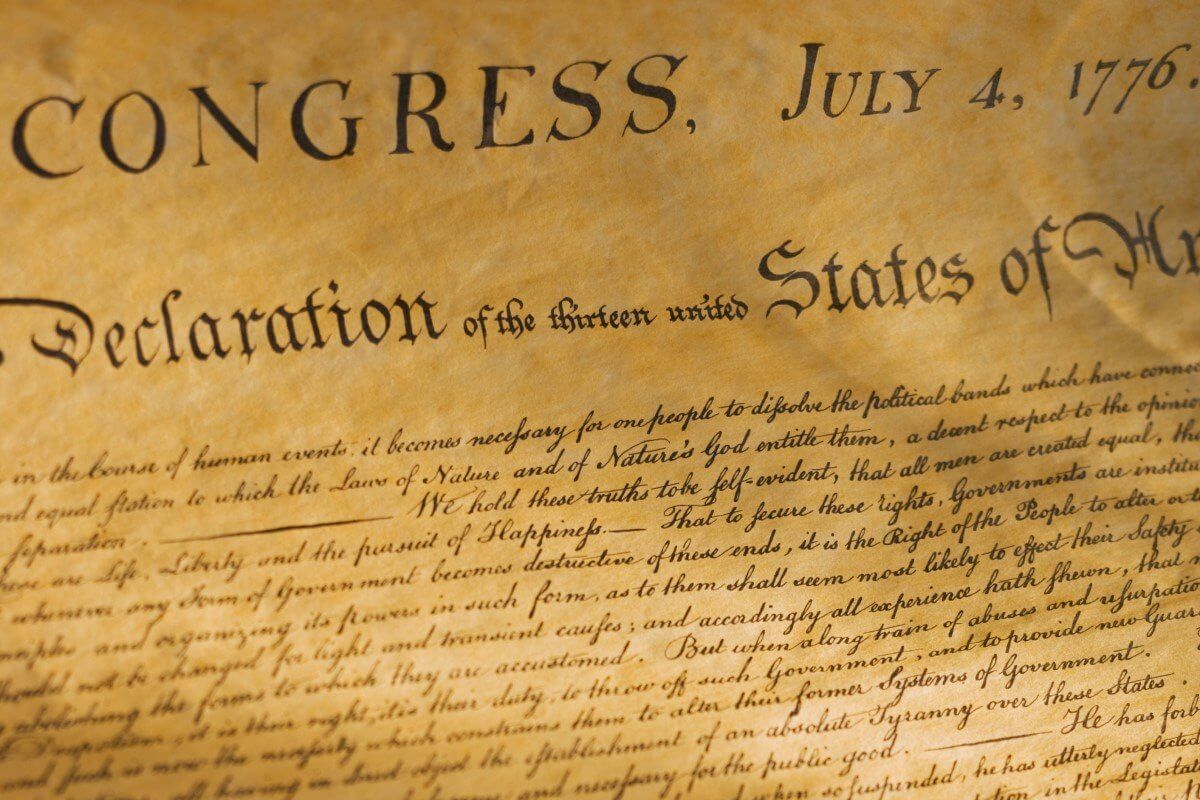 CONGRESS, JULY 4, 1776.
Declaration of the thirteen united States of Am
in the Course of human events, it becomes necessary for one people to dissolve the political bands which have connec
and equal station to which the Laws of Nature and of Nature's God entitle them, a decent respect to the opinion
separation. — We hold these truths to be self-evident, that all men are created equal, tha
these are Life, Liberty and the pursuit of Happiness.— That to secure these rights, Governments are institu
whenever any Form of Government becomes destructive of these ends, it is the Right of the People to alter or t
and organizing its powers in such form, as to them shall seem most likely to effect their Safety
should not be changed for light and transient causes; and accordingly all experience hath shewn, that
abolishing the forms to which they are accustomed. But when a long train of abuses and usurpatio
Despotism, it is their right, it is their duty, to throw off such Government, and to provide new Guar
and such is now the necessity which constrains them to alter their former Systems of Government.
all having in direct object the establishment of an absolute Tyranny over these States.
and necessary for the public good. — He has forb
when so suspended, he has utterly neglected
in the Legislat